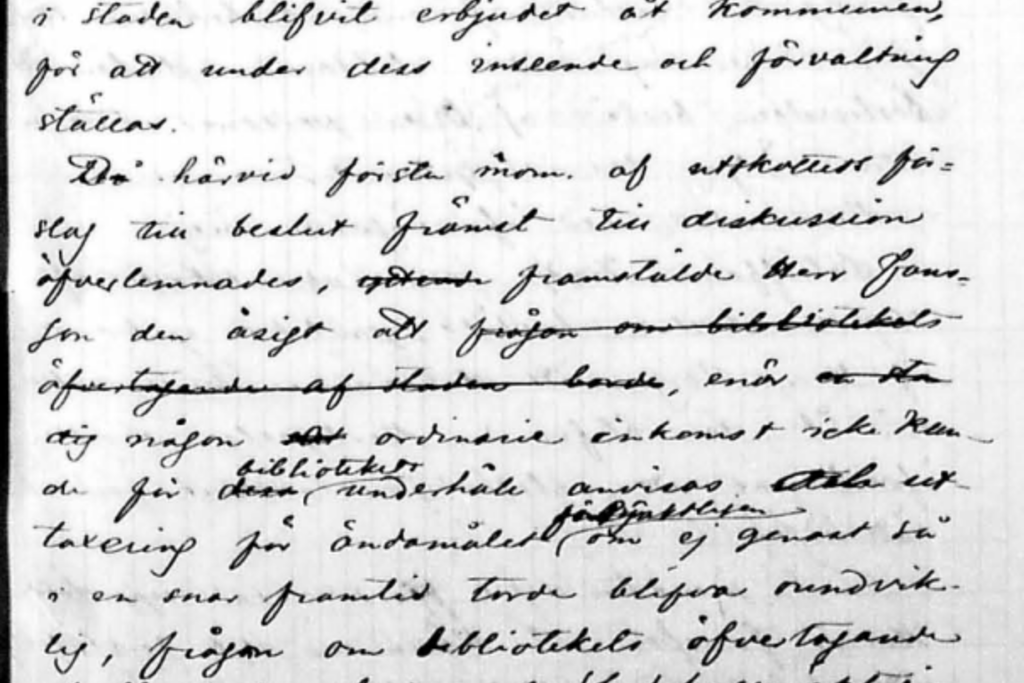 i staden blifvit erbjudet åt kommunen,
för att under dess inseende och förvaltning
ställas.
Då härvid första mom. af utskottets för-
slag till beslut främst till diskussion
öfverlemnades, yttrade framstälde Herr Jans-
son den åsigt att frågan om bibliotekets
öfvertagande af staden borde, enär en stän
dig någon ordinarie inkomst icke kun-
bibliotekets
de för dess underhåll anvisas ut-
taxering för ändamålet om ej genast så
i en snar framtid torde blifva oundvik-
lig, frågan om bibliotekets öfvertagande